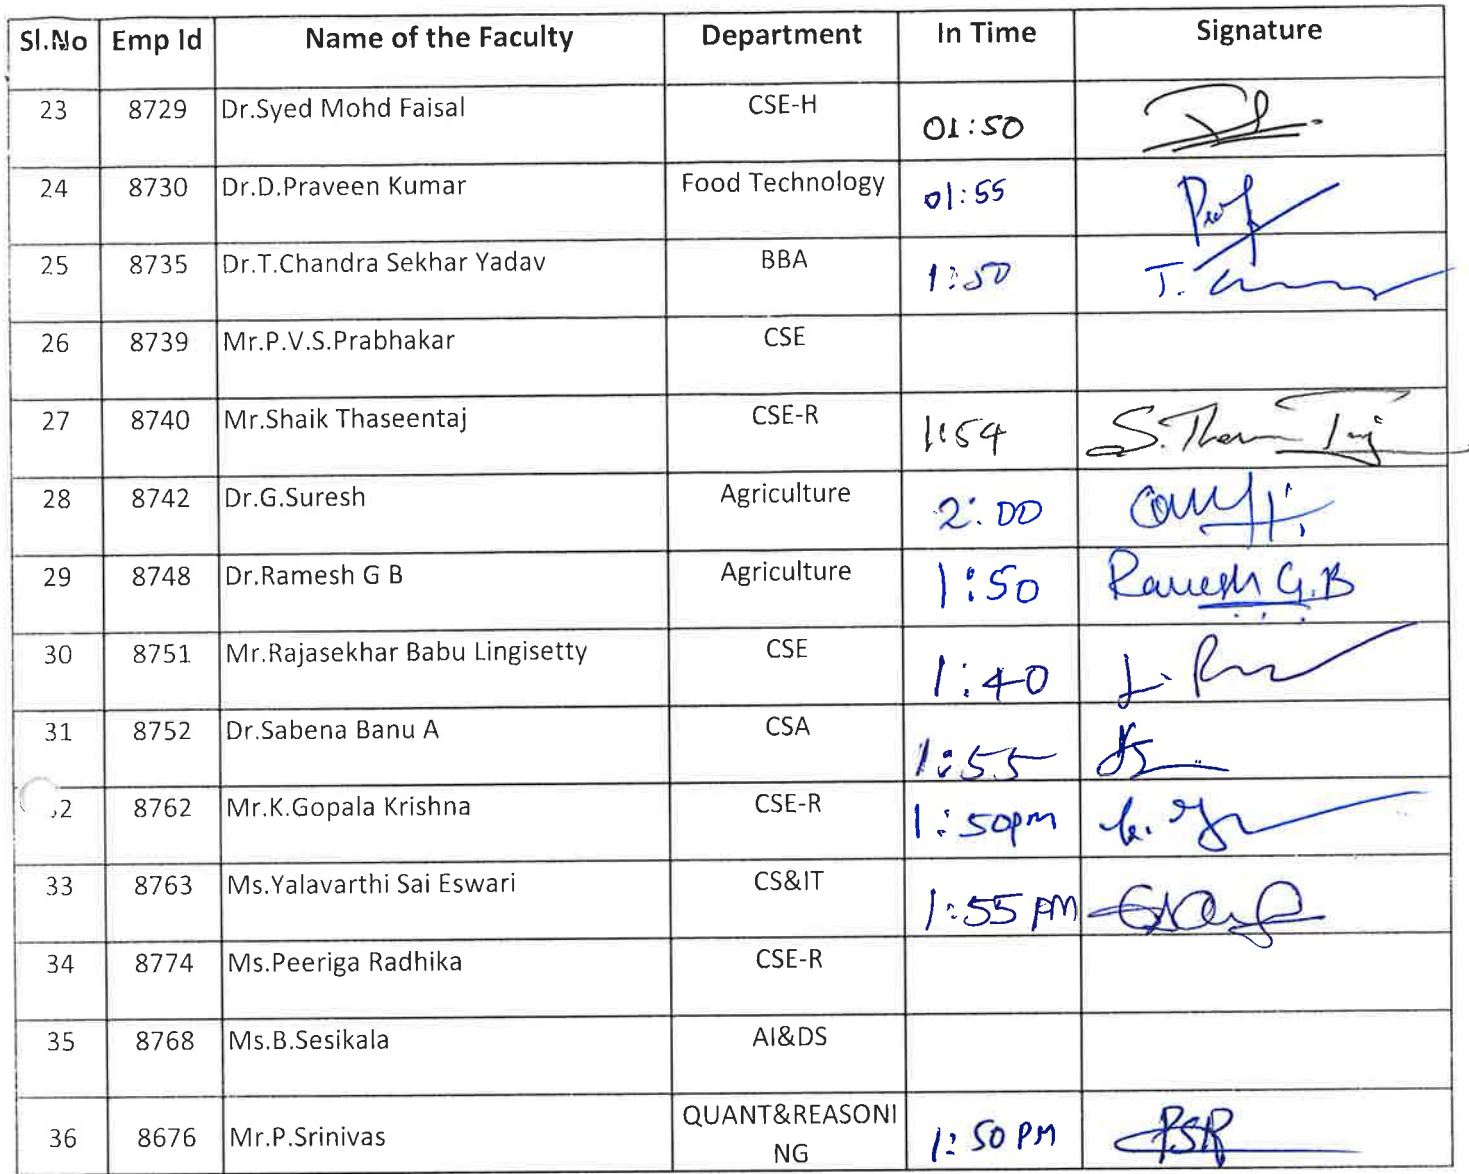 Sl.No Emp Id Name of the Faculty Department In Time Signature
23 8729 Dr.Syed Mohd Faisal CSE-H 01:50
24 8730 Dr.D.Praveen Kumar Food Technology 01:55
25 8735 Dr.T.Chandra Sekhar Yadav BBA 1:50 T.
26 8739 Mr.P.V.S.Prabhakar CSE
27 8740 Mr.Shaik Thaseentaj CSE-R 1:54 S. Taj
28 8742 Dr.G.Suresh Agriculture 2:00
29 8748 Dr.Ramesh G B Agriculture 1:50 Ramesh G.B
30 8751 Mr.Rajasekhar Babu Lingisetty CSE 1:40
31 8752 Dr.Sabena Banu A CSA 1:55
8762 Mr.K.Gopala Krishna CSE-R 1:50pm
33 8763 Ms.Yalavarthi Sai Eswari CS&IT 1:55 PM
34 8774 Ms.Peeriga Radhika CSE-R
35 8768 Ms.B.Sesikala AI&DS
36 8676 Mr.P.Srinivas QUANT&REASONI 1:50 PM PSR
NG